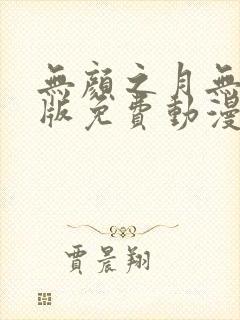 無顏之月無
版免費動漫
賈晨翔